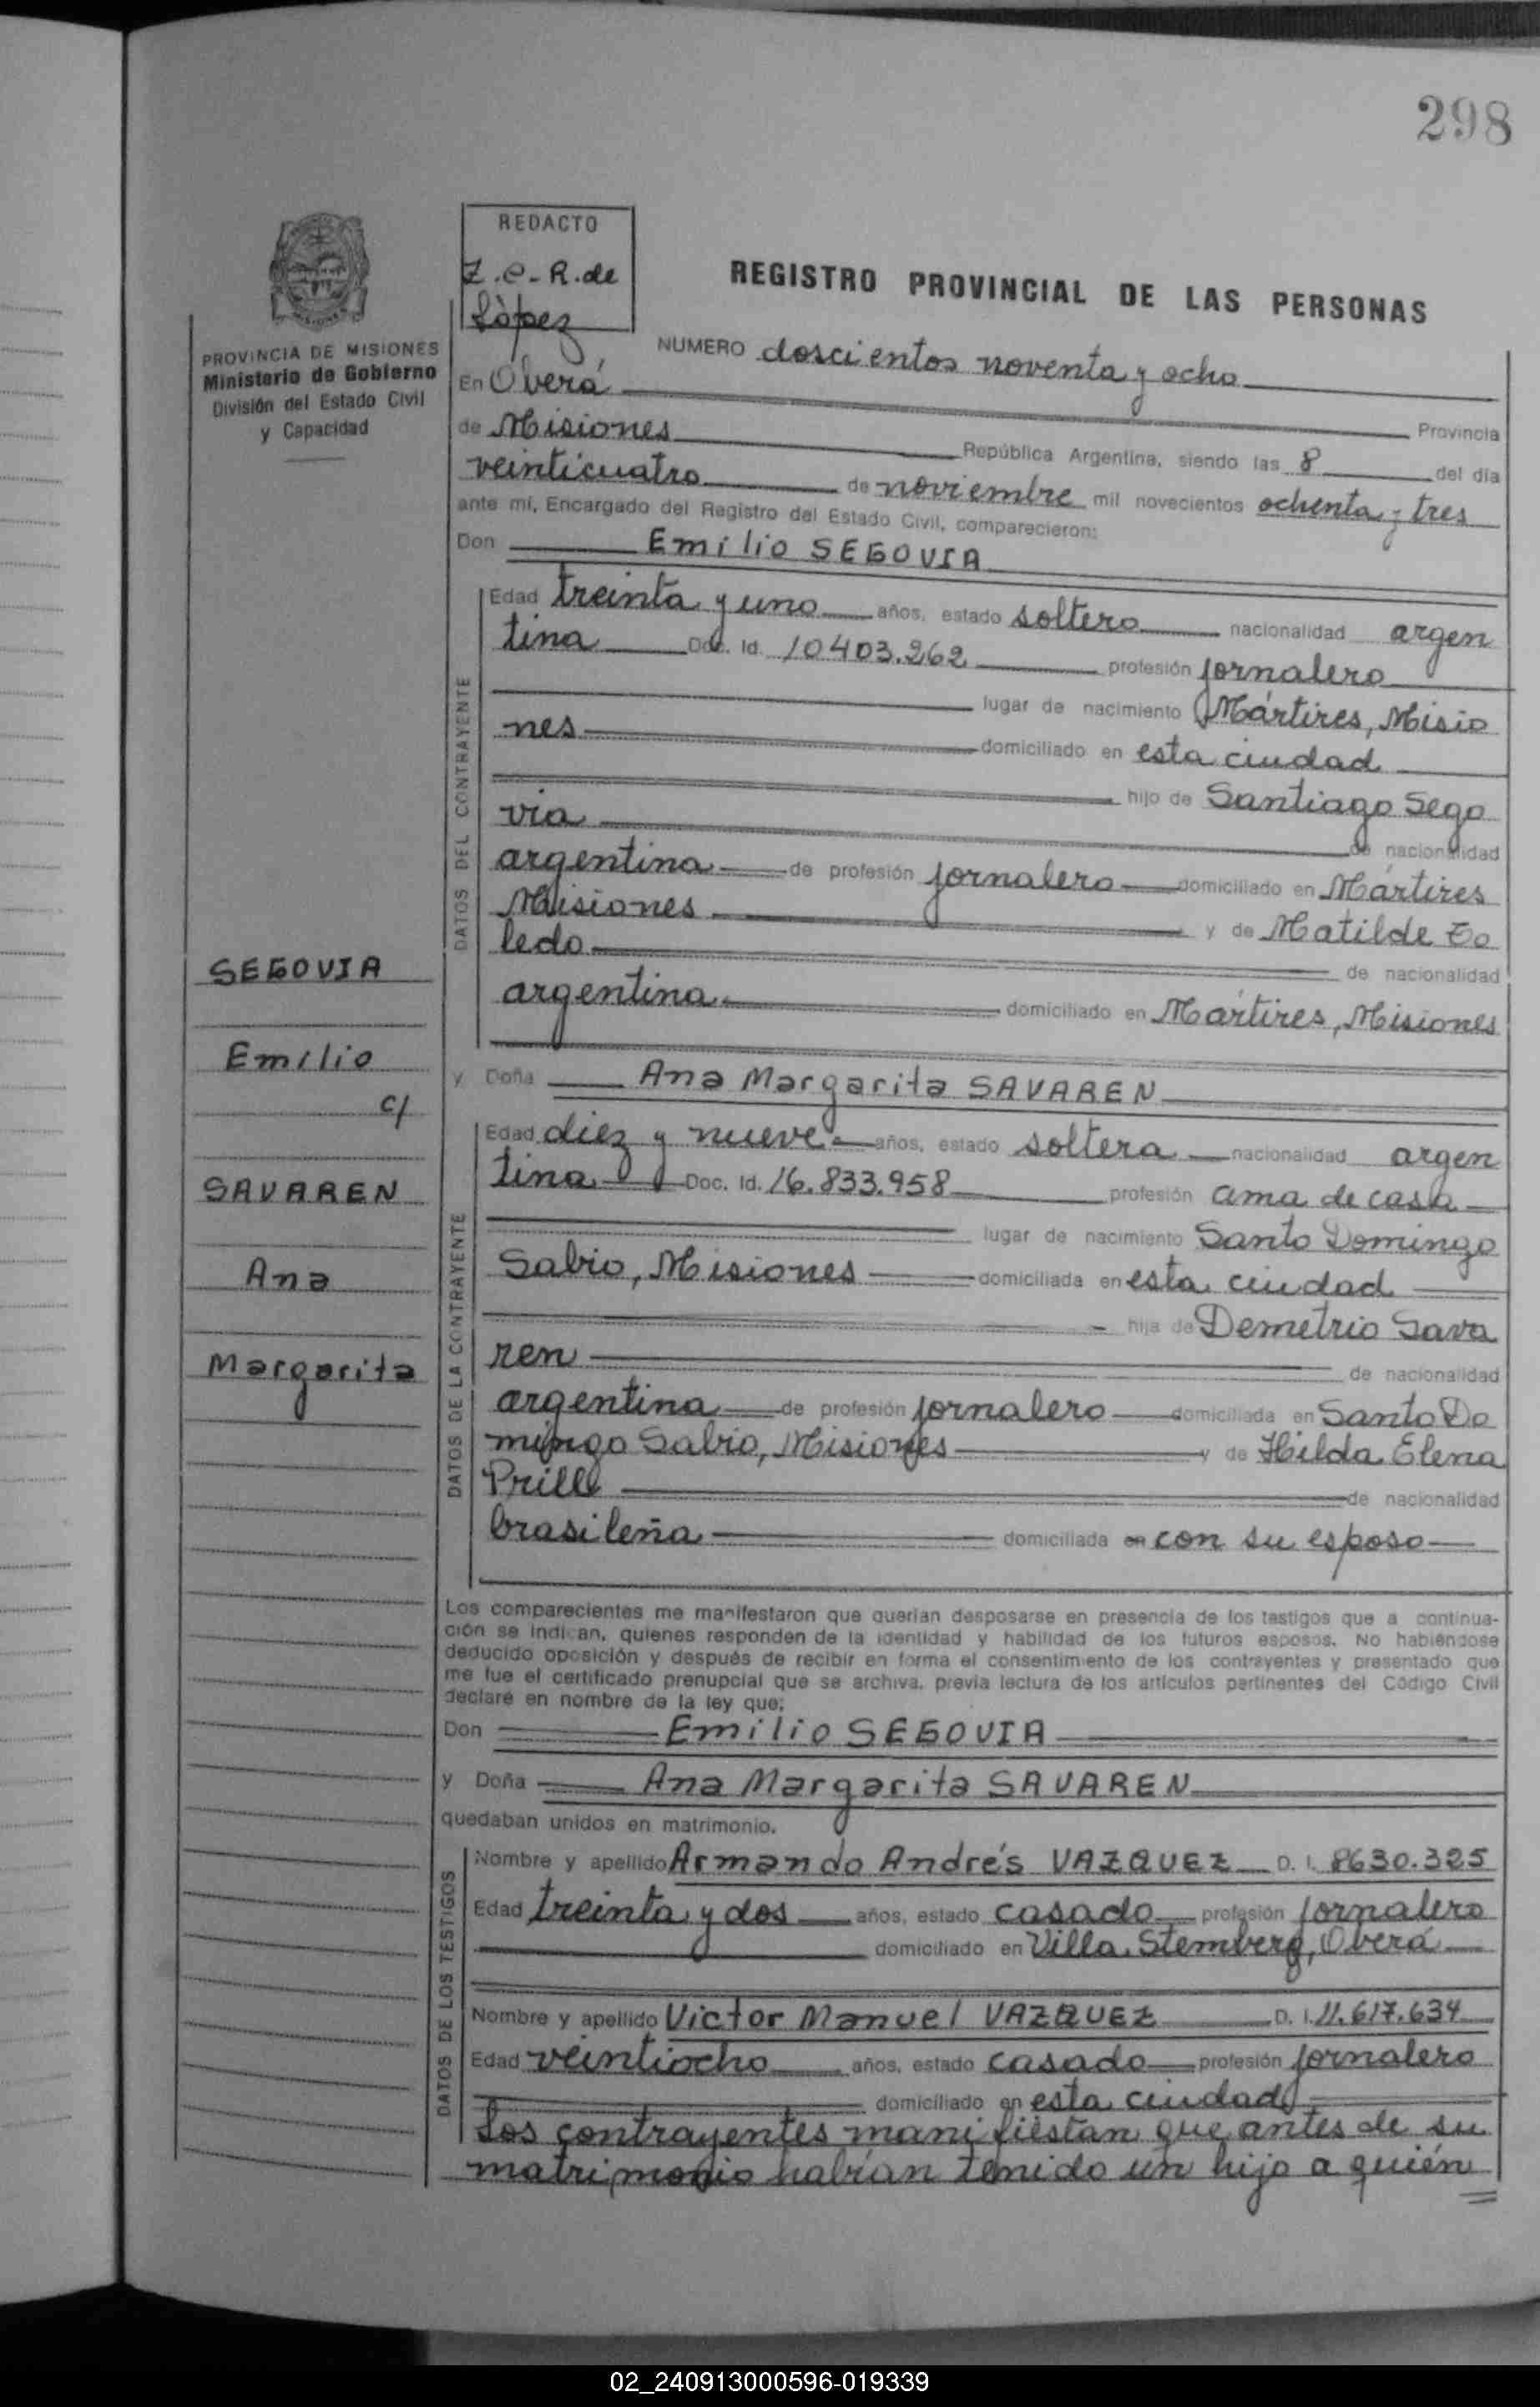 298
REDACTO
Z.C-R.de
López
REGISTRO PROVINCIAL DE LAS PERSONAS
PROVINCIA DE MISIONES
Ministerio de Gobierno
División del Estado Civil
y Capacidad
NUMERO doscientos noventa y ocho
En Oberá Provincia
de Misiones República Argentina, siendo las 8 del día
veinticuatro de noviembre mil novecientos ochenta y tres
ante mí, Encargado del Registro del Estado Civil, comparecieron:
Don Emilio SEGOVIA
DATOS DEL CONTRAYENTE
Edad treinta y uno años, estado soltero nacionalidad argen
tina Doc. Id. 10403.262 profesión jornalero
lugar de nacimiento Mártires, Misio
nes domiciliado en esta ciudad
hijo de Santiago Sego
via de nacionalidad
argentina de profesión jornalero domiciliado en Mártires
Misiones y de Matilde To
ledo de nacionalidad
argentina domiciliado en Mártires, Misiones
SEGOVIA
Emilio
c/
SAVAREN
Ana
Margarita
y Doña Ana Margarita SAVAREN
DATOS DE LA CONTRAYENTE
Edad diez y nueve años, estado soltera nacionalidad argen
tina Doc. Id. 16.833.958 profesión ama de casa
lugar de nacimiento Santo Domingo
Sabio, Misiones domiciliada en esta ciudad
hija de Demetrio Sava
ren de nacionalidad
argentina de profesión jornalero domiciliada en Santo Do
mingo Sabio, Misiones y de Hilda Elena
Prill de nacionalidad
brasileña domiciliada en con su esposo
Los comparecientes me manifestaron que querían desposarse en presencia de los testigos que a continua-
ción se indican, quienes responden de la identidad y habilidad de los futuros esposos. No habiéndose
deducido oposición y después de recibir en forma el consentimiento de los contrayentes y presentado que
me fue el certificado prenupcial que se archiva, previa lectura de los artículos pertinentes del Código Civil
declaré en nombre de la ley que:
Don Emilio SEGOVIA
y Doña Ana Margarita SAVAREN
quedaban unidos en matrimonio.
DATOS DE LOS TESTIGOS
Nombre y apellido Armando Andrés VAZQUEZ D. I. 8630.325
Edad treinta y dos años, estado casado profesión jornalero
domiciliado en Villa Stemberg, Oberá
Nombre y apellido Victor Manuel VAZQUEZ D. I. 11.617.634
Edad veintiocho años, estado casado profesión jornalero
domiciliado en esta ciudad
Los contrayentes manifiestan que antes de su
matrimonio habían tenido un hijo a quién
02_240913000596-019339